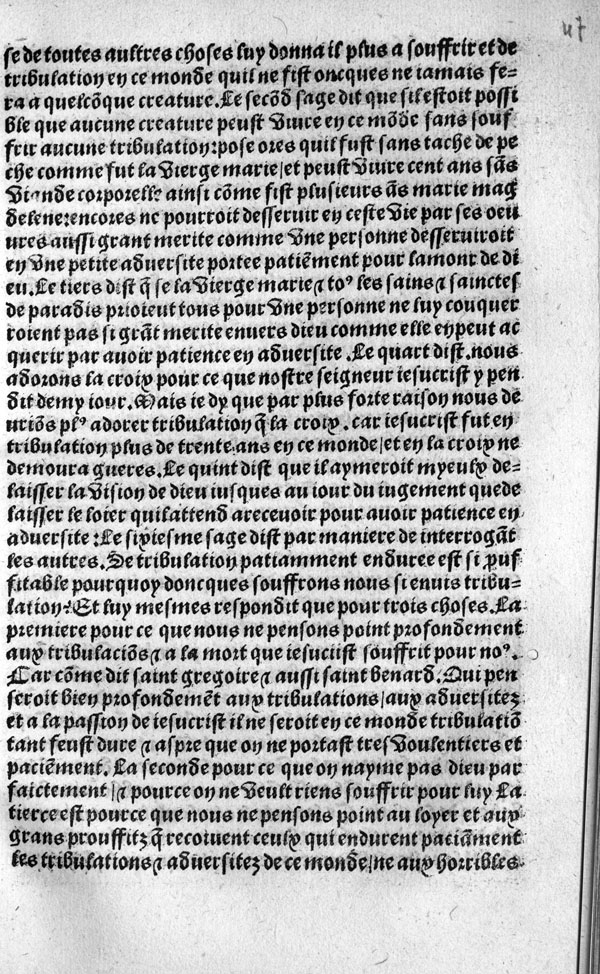 47
se de toutes aultres choses luy donna il plus a souffrir et de
tribulation en ce monde quil ne fist oncques ne iamais fe-
ra a quelcõque creature. Le secõd sage dit que sil estoit possi
ble que aucune creature peust viure en ce mõde sans souf
frir aucune tribulation: pose ores quil fust sans tache de pe
che comme fut la vierge marie/et peust viure cent ans sãs
viande corporelle ainsi cõme fist plusieurs ãs marie mag
delene: encores ne pourroit desseruir en ceste vie par ses oeu
ures aussi grant merite comme vne personne desseruiroit
en vne petite aduersite portee patiẽment pour lamour de di
eu. Le tiers dist q̃ se la vierge marie ⁊ toꝰ les sains ⁊ sainctes
de paradis prioient tous pour vne personne ne luy conquer
roient pas si grãt merite enuers dieu comme elle en peut ac
querir par auoir patience en aduersite. Le quart dist. nous
adorons la croix pour ce que nostre seigneur iesucrist y pen
dit demy iour. Mais ie dy que par plus forte raison nous de
uriõs plꝰ adorer tribulation q̃ la croix. car iesucrist fut en
tribulation plus de trente ans en ce monde/et en la croix ne
demoura gueres. Le quint dist que il aymeroit myeulx de-
laisser la vision de dieu iusques au iour du iugement que de
laisser le loier quil attend a receuoir pour auoir patience en
aduersite: Le sixiesme sage dist par maniere de interrogãt
les autres. Se tribulation patiamment enduree est si ꝓuf-
fitable pourquoy doncques souffrons nous si enuis tribu-
lation? Et luy mesmes respondit que pour trois choses. La
premiere pour ce que nous ne pensons point profondement
aux tribulaciõs ⁊ a la mort que iesucrist souffrit pour noꝰ.
Car cõme dit saint gregoire ⁊ aussi saint benard. Qui pen
seroit bien profondemẽt aux tribulations/aux aduersitez
et a la passion de iesucrist il ne seroit en ce monde tribulatiõ
tant feust dure ⁊ aspre que on ne portast tres voulentiers et
paciẽment. La seconde pour ce que on nayme pas dieu par
faictement/⁊ pource on ne veult riens souffrir pour luy La
tierce est pource que nous ne pensons point au loyer et aux
grans prouffitz q̃ recoiuent ceulx qui endurent paciãment
les tribulations ⁊ aduersitez de ce monde/ne aux horribles